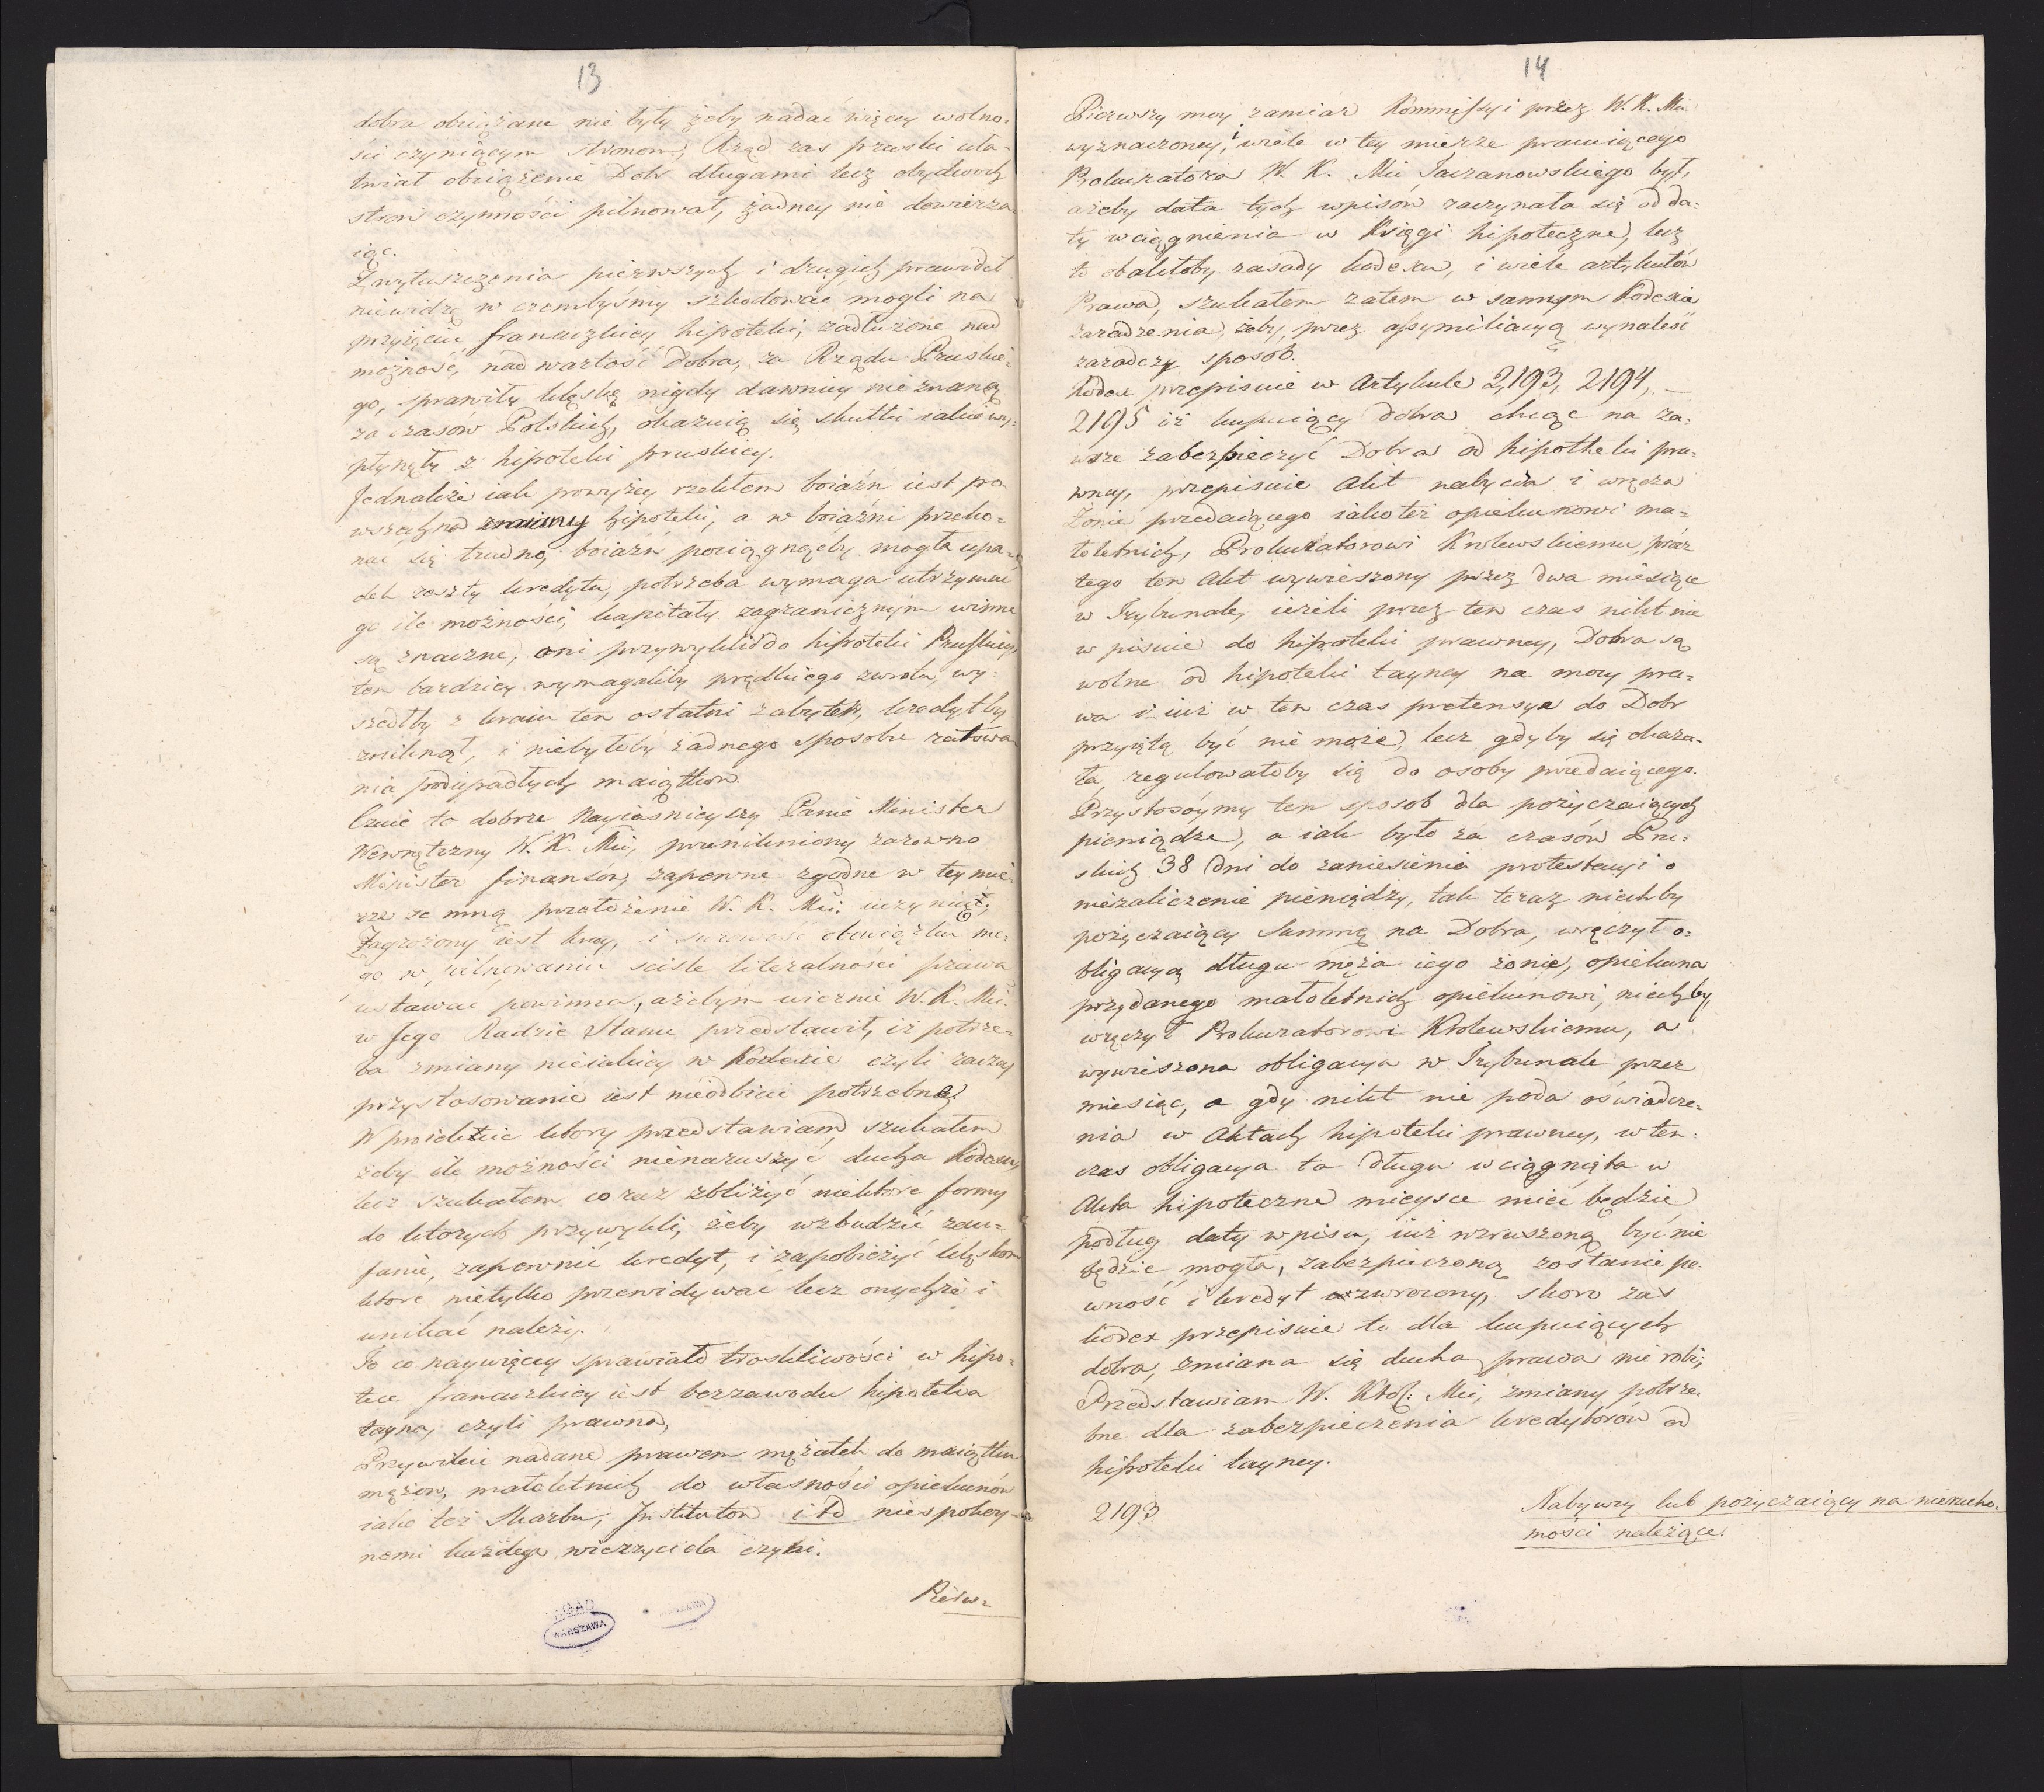 13
dobra obciążane nie były żeby nadać więcey wolno-
ści czyniącym stronom, Rząd zas pruski uła-
twiał obciążenie Dobr długami lecz obydwóch
stron czynności pilnował, żadney nie dowierza-
iąc.
Z wyłuszczenia pierwszych i drugich prawideł
niewidzę w czembyśmy szkodować mogli na
przyięciu francuzkiey hipoteki, zadłużone nad
możność, nad wartość Dobra, za Rządu Pruskie-
go, sprawiły klęskę nigdy dawniey nieznaną
za czasów Polskich, okazuią się skutki iakie wy-
płynęły z hipoteki pruskiey.
Jednakże iak powyżey rzekłem boiaźń iest po-
wszechna hipoteki, a w boiaźni przeko-
nać się trudno, boiaźń pociągnąćby mogła upa-
dek reszty kredytu, potrzeba wymaga utrzymać
go ile możności, kapitały zagranicznym winne
są znaczne, oni przywykli do hipoteki Pruskiey,
tem bardziey wymagaliby prędkiego zwrotu, wy-
szedłby z kraiu ten ostatni zabytek, kredytby
zniknął, i niebyłoby żadnego sposobu ratowa-
nia podupadłych maiątków.
Czuie to dobrze Nayiaśnieyszy Panie Minister
Wewnętrzny W. K. Mci, przenikniony zarowno
Minister finansów, zapewne zgodne w tey mie-
rze ze mną przełożenie W. K. Mci uczynić,
Zagrożony iest kray, i surowość obowiązku me-
go w pilnowaniu ściśle literalności prawa
ustawać powinna, ażebym wiernie W. K. Mci.
w Jego Radzie Stanu przedstawił, iż potrze-
ba zmiany nieiakiey w Kodexie czyli raczey
przystosowanie iest nieodbicie potrzebne.
W proiekcie ktory przedstawiam, szukałem
żeby ile możności nienaruszyć ducha Kodexu,
lecz szukałem coraz zbliżyć niektore formy
do ktorych przywykli, żeby wzbudzić zau-
fanie, zapewnić kredyt, i zapobieżyć klęskom
ktore nietylko przewidywać lecz onychże i
unikać należy.
To co naywięcey sprawiało troskliwości w hipo-
tece francuzkiey iest bezzawodu hipoteka
tayna, czyli prawna,
Przywileie nadane prawem mężatek do maiątku
mężów, małoletnich do własności opiekunów
iako też Skarbu, Institutow itd niespokoy-
nemi każdego wierzyciela czyni.
Pierw-
AGAD
WARSZAWA
14
Pierwszy moy zamiar Kommissyi przez W. K. Mć
wyznaczoney, i wiele w tey mierze pracuiącego
Prokuratora W. K. Mci Taczanowskiego był,
ażeby data tych wpisów zaczynała się od da-
ty wciągnienia w Księgi hipoteczne, lecz
to obaliłoby zasady kodexu, i wiele artykułów
Prawa, szukałem zatem w samym Kodexie
zaradzenia, żeby przez assymiliacyą wynaleść
zaradczy sposob.
Kodex przepisuie w Artykule 2193, 2194, —
2195 iż kupuiący dobra chcąc na za-
wsze zabezpieczyć Dobra od hipotheki pra-
wney, przepisuie Akt nabycia i wręcza
Żonie przedaiącego iakoteż opiekunowi ma-
łoletnich, Prokuratorowi Krolewskiemu, prócz
tego ten Akt wywieszony przez dwa miesiące
w Trybunale, ieżeli przez ten czas nikt nie
wpisuie do hipoteki prawney, Dobra są
wolne od hipoteki tayney na mocy pra-
wa i iuż w ten czas pretensya do Dobr
przyiętą być nie może, lecz gdyby się okaza-
ła, regulowałoby się do osoby przedaiącego.
Przystosóymy ten sposob dla pożyczaiących
pieniądze, a iak było za czasów Pru-
skich 38 dni do zaniesienia protestacyi o
niezaliczenie pieniędzy, tak teraz niechby
pożyczaiący Summę na Dobra, wręczył o-
bligacyą długu męża iego żonie, opiekuna
przydanego małoletnich opiekunowi, niechby
wręczył Prokuratorowi Krolewskiemu, a
wywieszona obligacya w Trybunale przez
miesiąc, a gdy nikt nie poda oświadcze-
nia w Aktach hipoteki prawney, w ten-
czas obligacya ta długu wciągnięta w
Akta hipoteczne mieysce mieć będzie
podług daty wpisu, iuż wzruszoną być nie
będzie mogła, zabezpieczoną zostanie pe-
wność i kredyt wzwrocony, skoro zas
kodex przepisuie to dla kupuiących
dobra, zmiana się ducha prawa nie robi,
Przedstawiam W. Krol. Mci, zmiany potrze-
bne dla zabezpieczenia kredytorów od
hipoteki tayney.
2193
Nabywcy lub pożyczaiący na nierucho-
mości należące.